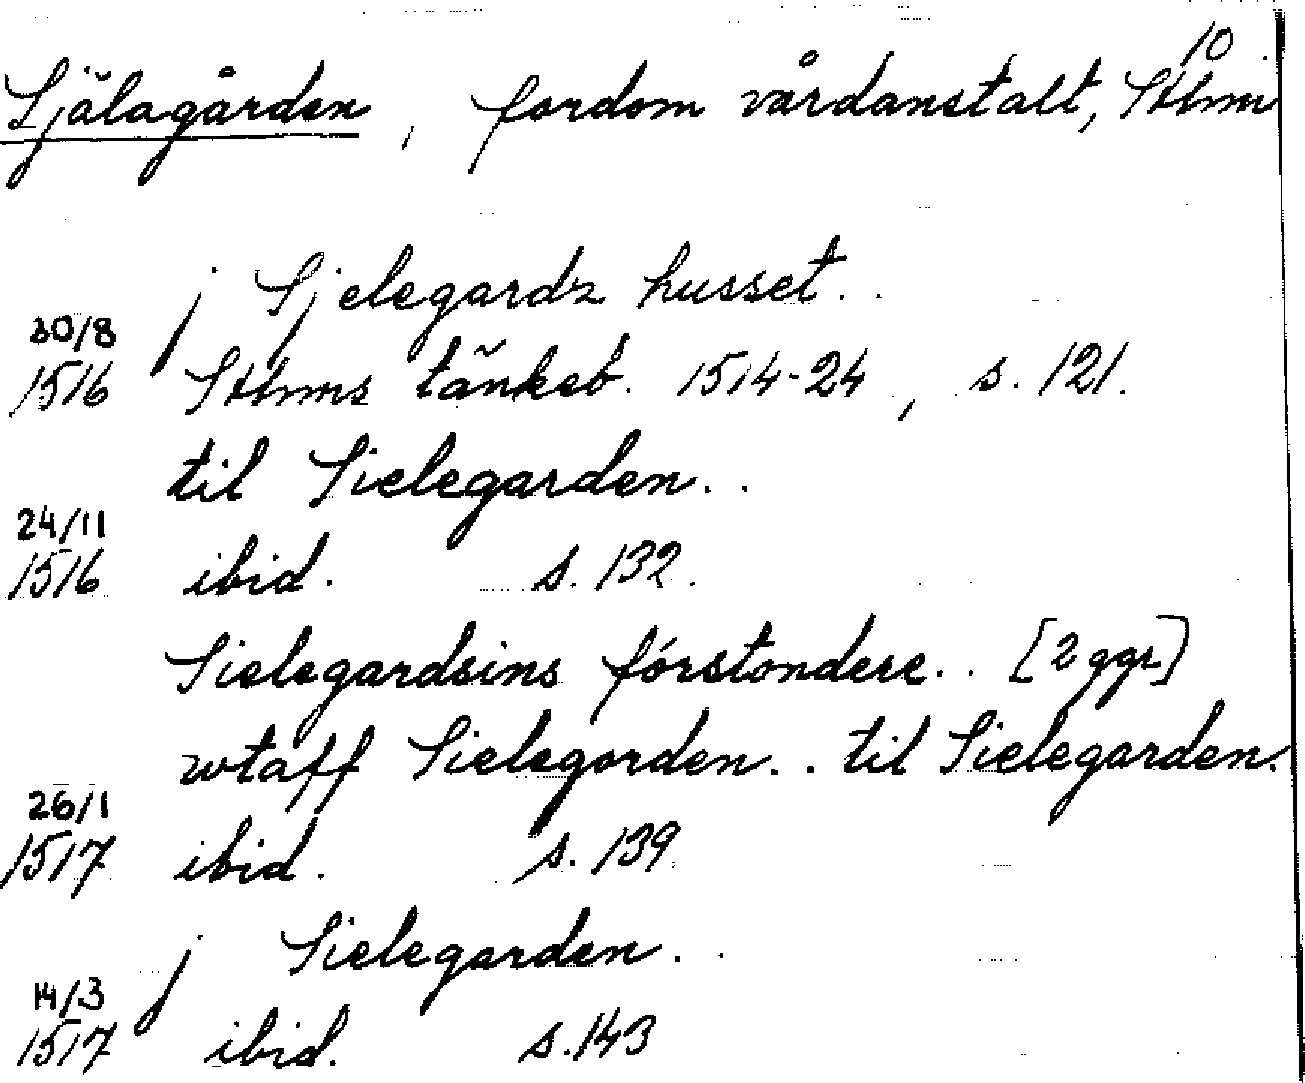 10
Själagården, fordom vårdanstalt, Sthm
j Sjelegardz husset..
30/8
1516 Sthms tänkeb. 1514-24, s. 121.
til Sielegarden..
24/11
1516 ibid. s. 132.
Sielegardsins förstondere.. [2 ggr]
wtaff Sielegorden.. til Sielegarden.
26/1
1517 ibid. s. 139
j Sielegarden..
14/3
1517 ibid. s. 143